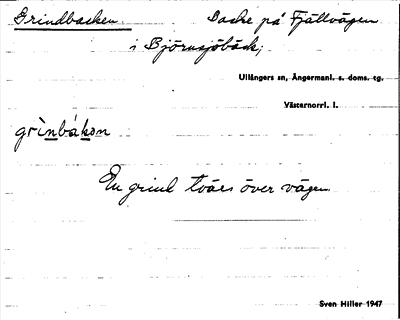 Grindbacken Backe på Fjällvägen
i Björnsjöbäck;
Ullångers sn, Ångermanl. s. doms. tg.
Västernorrl. l.
grìnbákən
En grind tvärs över vägen
Sven Hiller 1947